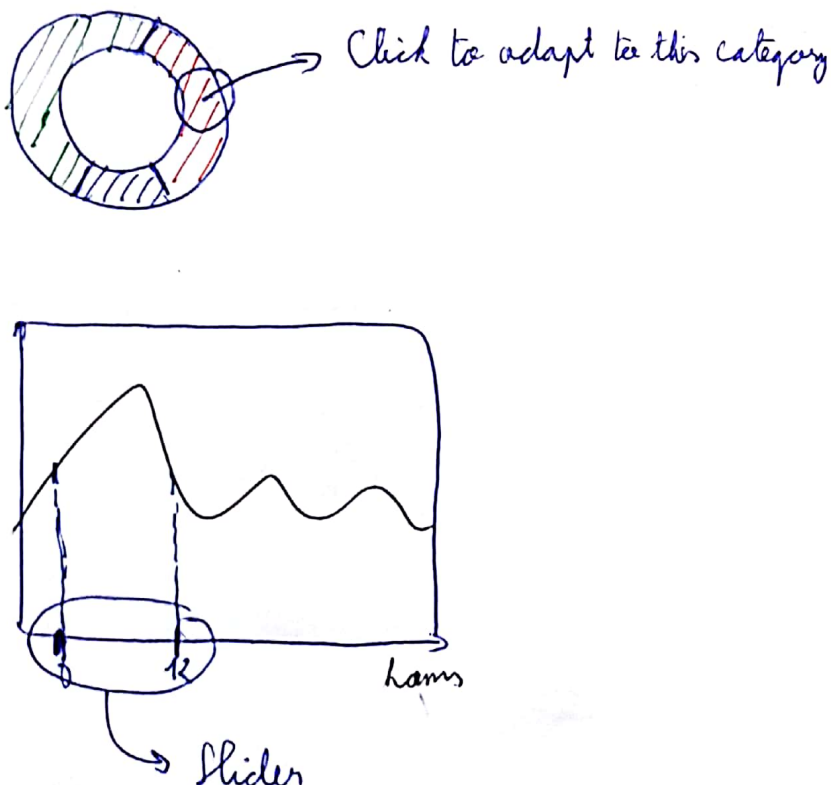 Click to adapt to this category
12
hours
Slider